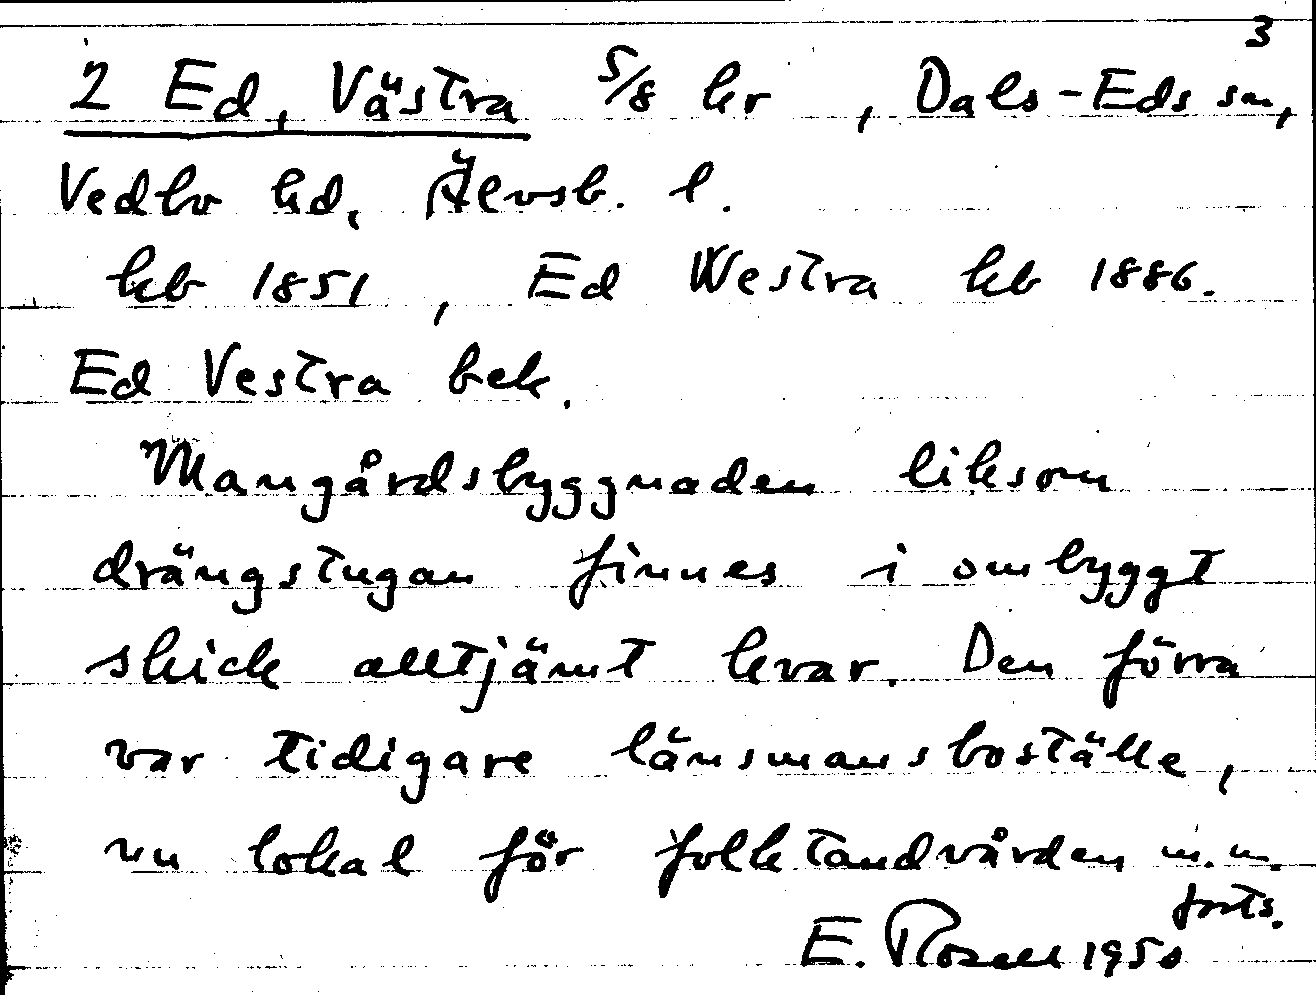 3
2 Ed, Västra 5/8 kr , Dals-Eds sn,
Vedbo hd, Älvsb. l.
kb 1851 , Ed Westra kb 1886.
Ed Vestra bek.
Mangårdsbyggnaden liksom
drängstugan finnes i ombyggt
skick alltjämt kvar. Den förra
var tidigare länsmansboställe,
nu lokal för folktandvården m.m.
forts.
E. Rosell 1950